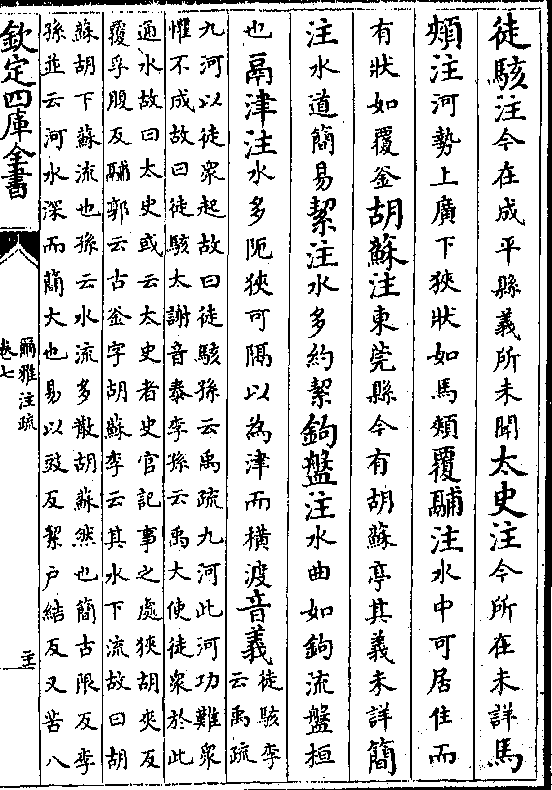 徒駭注今在成平縣義所未聞太史注今所在未詳馬
頰注河勢上廣下狹狀如馬頰覆鬴注水中可居住而
有狀如覆釜胡蘇注東莞縣今有胡蘇亭其義未詳簡
注水道簡易絜注水多約絜鉤盤注水曲如鉤流盤桓
也鬲津注水多阨狹可隔以為津而橫渡音義徒駭李
云禹疏
九河以徒衆起故曰徒駭孫云禹疏九河此河功難衆
懼不成故曰徒駭太謝音泰李孫云禹大使徒衆於此
通水故曰太史或云太史者史官記事之處狹胡夾反
覆孚腹反鬴郭云古釜字胡蘇李云其水下流故曰胡
蘇胡下蘇流也孫云水流多散胡蘇然也簡古限反李
孫並云河水深而簡大也易以豉反絜户結反又苦八
欽定四庫全書
爾雅注疏
卷七